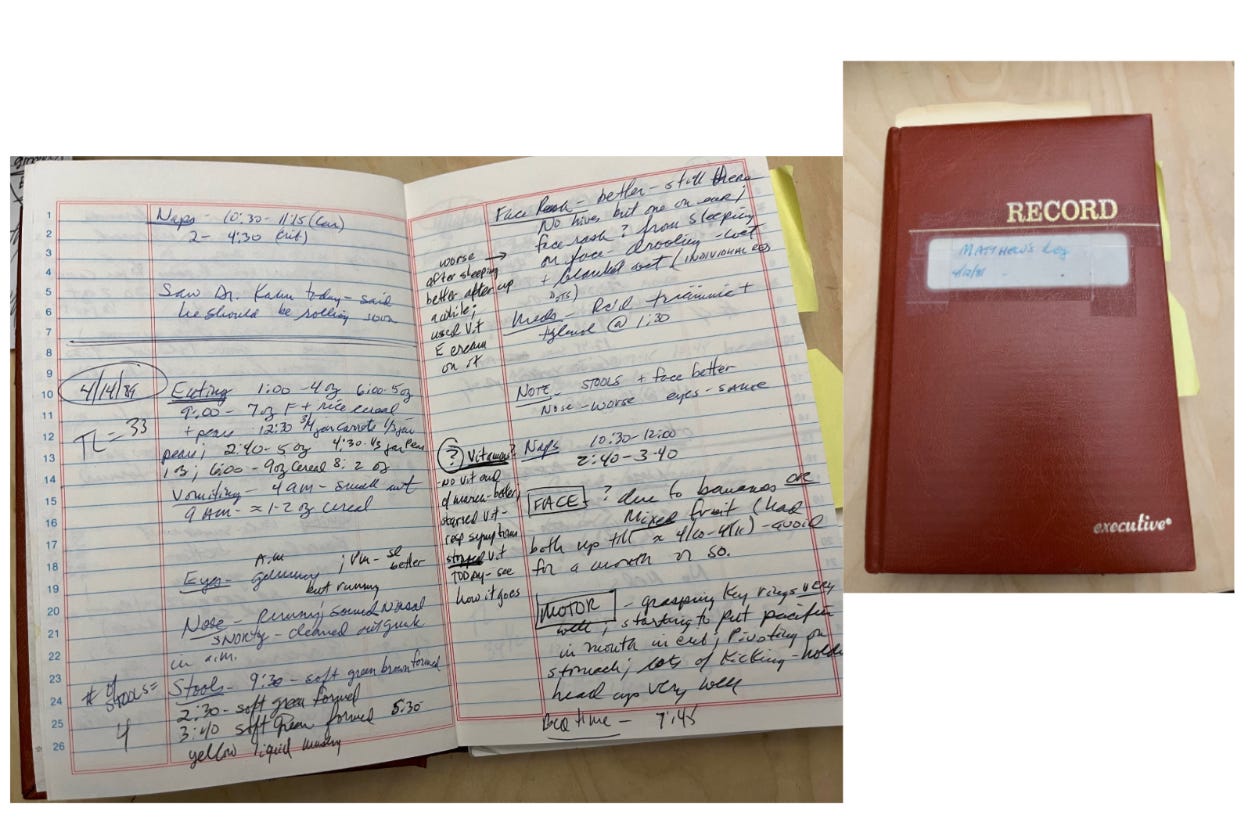 Naps - 10:30 - 11:15 (car)
2 - 4:30 (crib)
Saw Dr. Kahn today - said
he should be rolling soon
4/14/89
TL = 33
Eating 1:00 - 4 oz 6:00 - 5 oz
9:00 - 7 oz F + rice cereal
+ pears 12:30 3/4 jar carrots 1/3 jar
pears; 2:40 - 5 oz 4:30 - 1/3 jar pears
6:00 - 9 oz cereal 8: 2 oz
Vomiting - 4 am - small amt
9 AM - ≈ 1-2 oz cereal
A.M ; PM - better
Eyes - but runny
Nose - Running; sound nasal
SNORTY - cleaned out gunk
in a.m.
# of
STOOLS =
4
Stools - 9:30 - soft green brown formed
2:30 - soft green formed
3:40 soft green formed 5:30
yellow liquid
Face Rash - better - still there
No hives but one on ear;
face rash ? from sleeping
on face - drooling - wet
+ blanket wet (INDIVIDUAL RED
DOTS)
worse →
after sleeping
better after up
awhile;
used Vit
E cream
on it
Meds - Rec'd triaminic +
tylenol @ 1:30
NOTE - STOOLS + face better
Nose - worse eyes - same
? Vitamins?
NO Vit end
of march - better;
started Vit -
resp symptoms
stopped Vit
TODAY - see
how it goes
Naps 10:30 - 12:00
2:40 - 3:40
FACE - ? due to bananas OR
Mixed fruit (had
both up till ≈ 4/10 - 4/11) - avoid
for a month or so.
MOTOR - grasping key rings VERY
well; starting to put pacifier
in mouth in crib; Pivoting on
stomach; lots of kicking - holds
head up very well
Bed time - 7:45
RECORD
MATTHEW'S Log
executive®
1
2
3
4
5
6
7
8
9
10
11
12
13
14
15
16
17
18
19
20
21
22
23
24
25
26